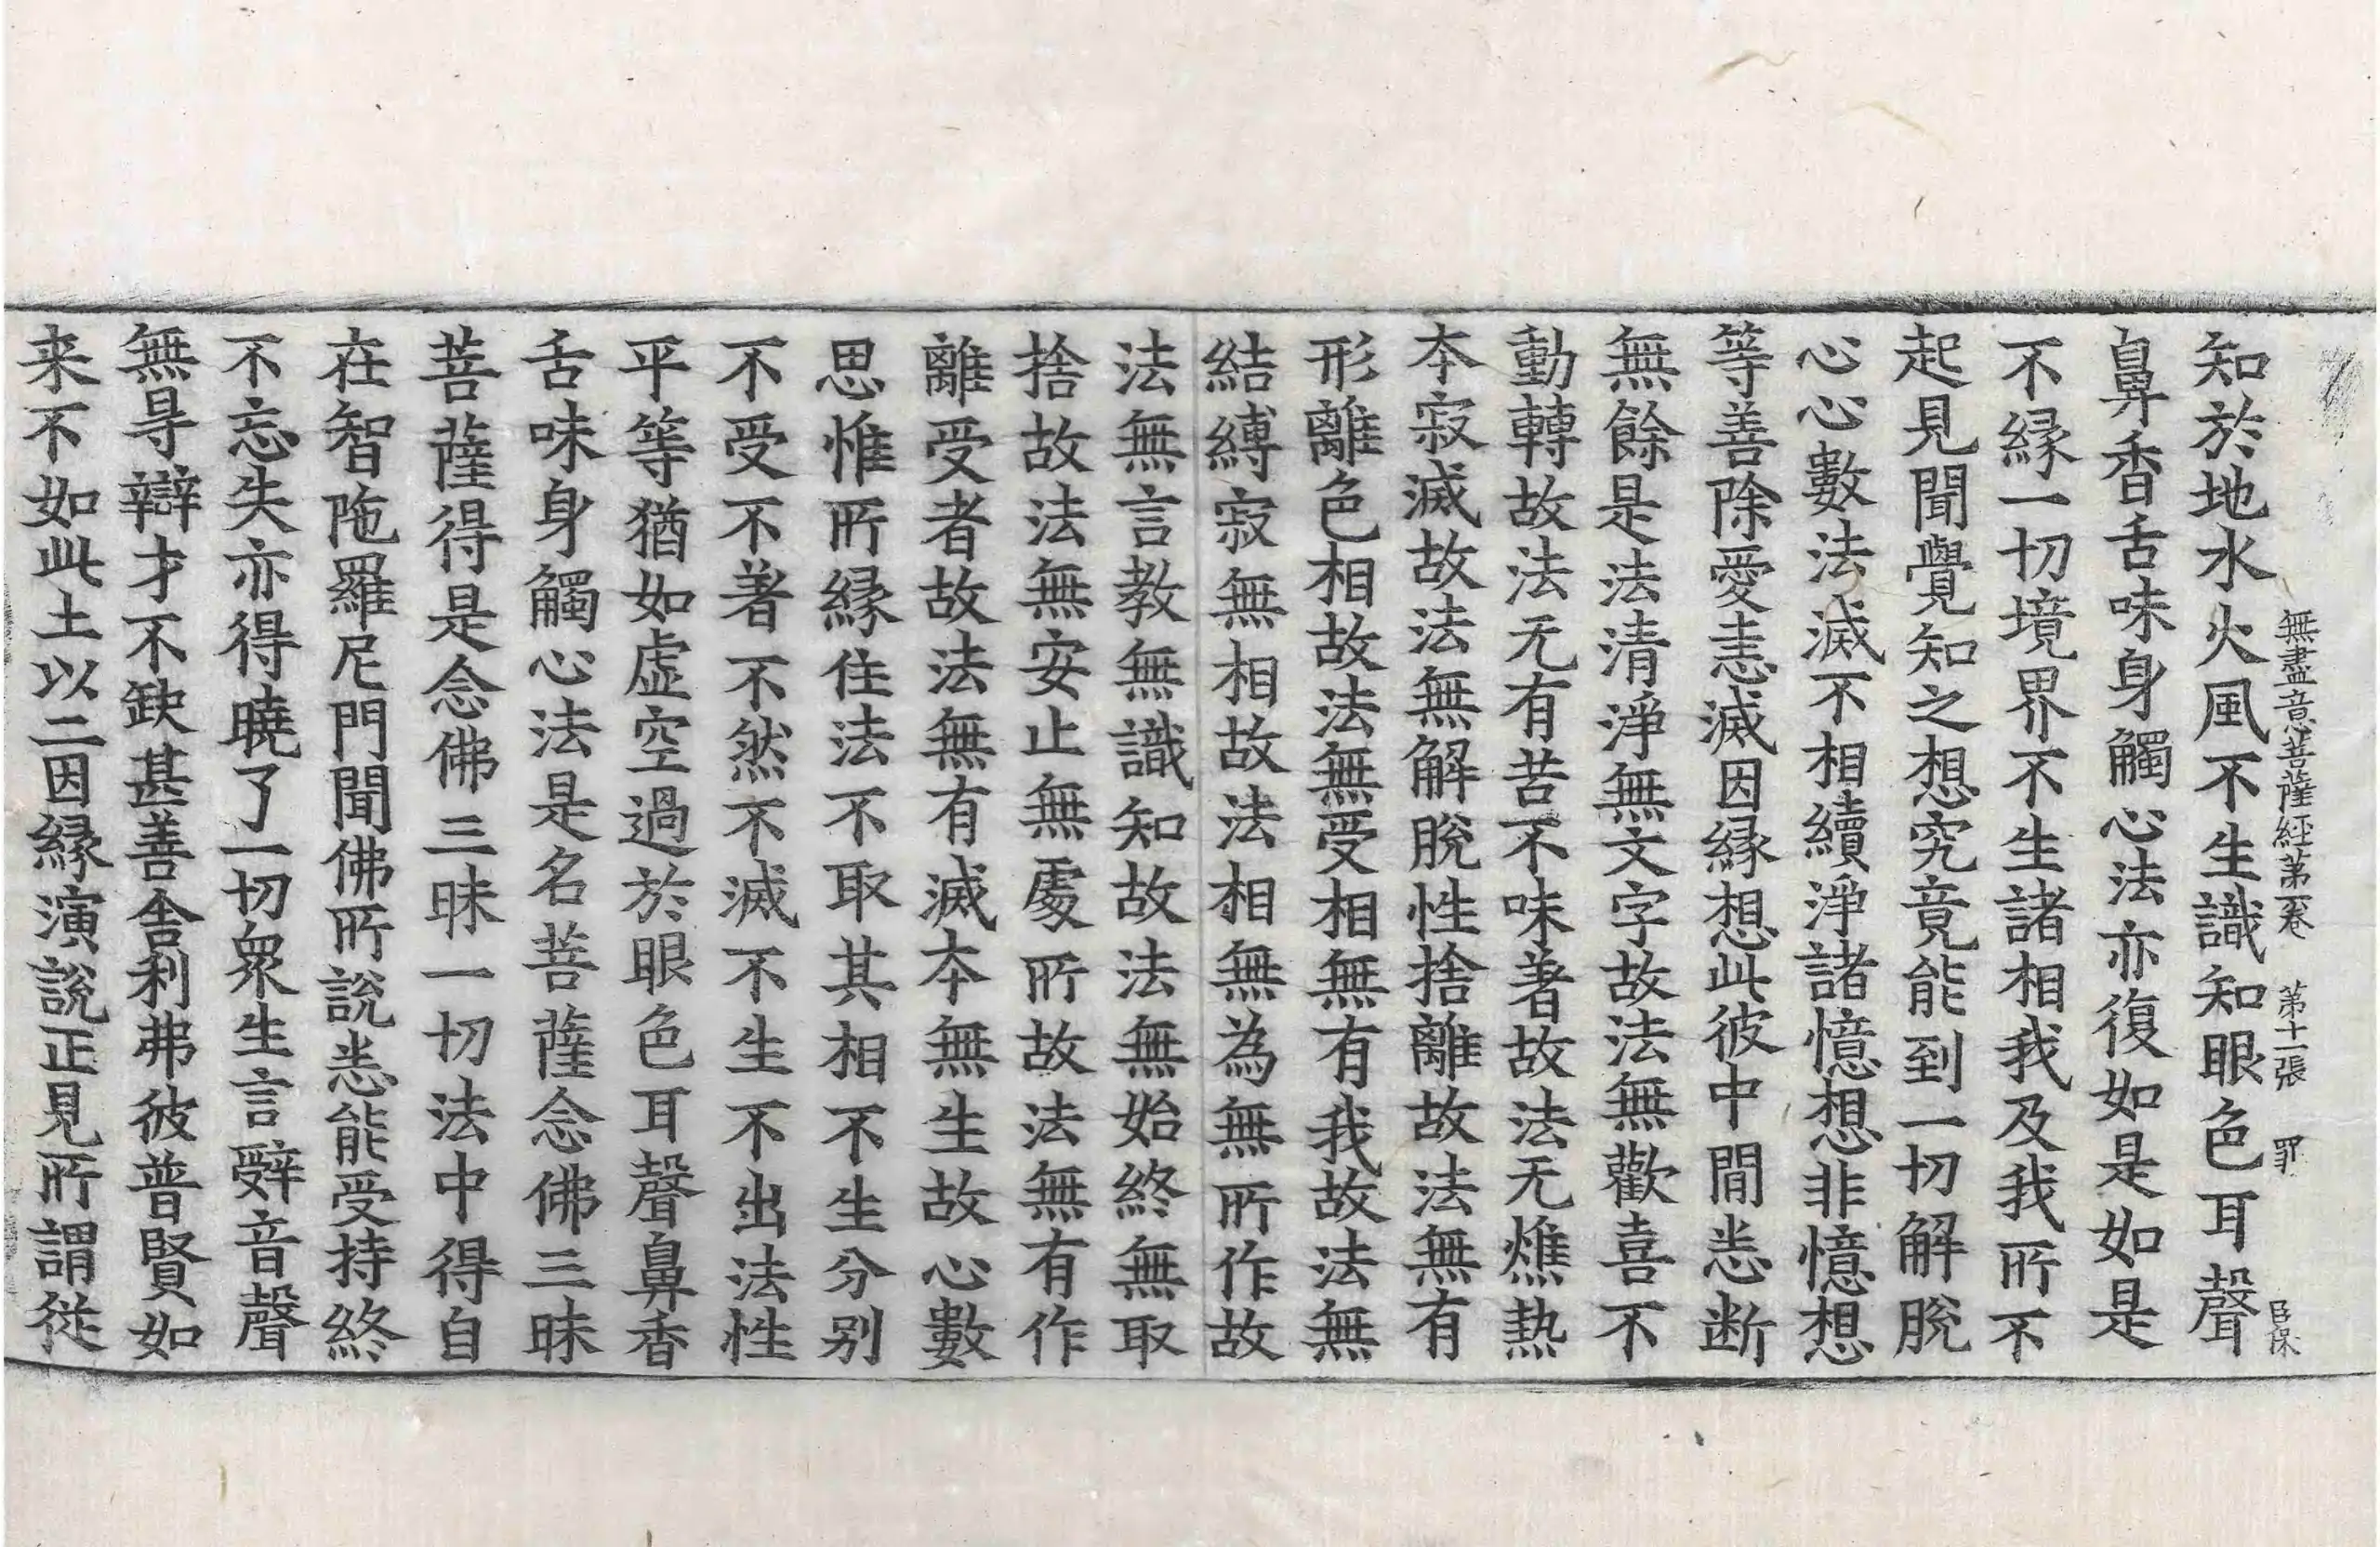 無盡意菩薩經第一卷 第十一張 罪 臣保
知於地水火風不生識知眼色耳聲
鼻香舌味身觸心法亦復如是如是
不縁一切境界不生諸相我及我所不
起見聞覺知之想究竟能到一切解脫
心心數法滅不相續淨諸憶想非憶想
等善除愛恚滅因縁想此彼中間悉断
無餘是法清淨無文字故法無歡喜不
動轉故法无有苦不味著故法无燋熱
本寂滅故法無解脫性捨離故法無有
形離色相故法無受相無有我故法無
結縛寂無相故法相無為無所作故
法無言教無識知故法無始終無取
捨故法無安止無處所故法無有作
離受者故法無有滅本無生故心數
思惟所縁住法不取其相不生分别
不受不著不然不滅不生不出法性
平等猶如虛空過於眼色耳聲鼻香
舌味身觸心法是名菩薩念佛三昧
菩薩得是念佛三昧一切法中得自
在智陁羅尼門聞佛所說悉能受持終
不忘失亦得曉了一切衆生言辭音聲
無㝵辯才不缺甚善舍利弗彼普賢如
来不如此土以二因縁演說正見所謂從